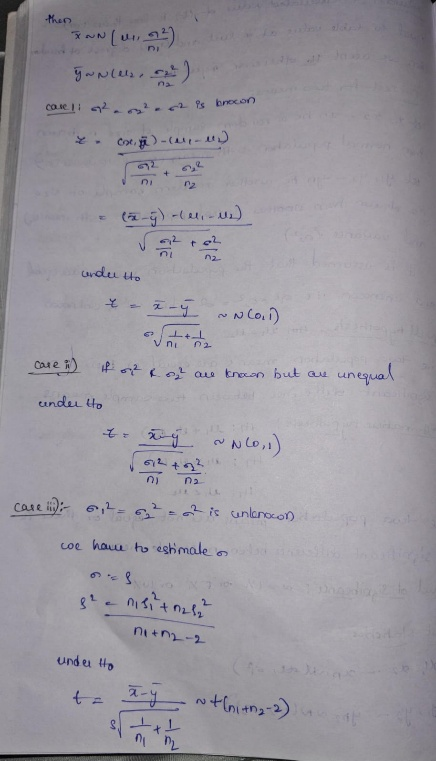 then
x̄ ~ N(μ₁, σ₁²/n₁)
ȳ ~ N(μ₂, σ₂²/n₂)
case i): σ₁² = σ₂² = σ² is known
z = (x̄, ȳ) - (μ₁ - μ₂) / √(σ₁²/n₁ + σ₂²/n₂)
= (x̄ - ȳ) - (μ₁ - μ₂) / √(σ²/n₁ + σ²/n₂)
under H₀
z = x̄ - ȳ / σ√(1/n₁ + 1/n₂) ~ N(0,1)
case ii) If σ₁² & σ₂² are known but are unequal
under H₀
z = x̄ - ȳ / √(σ₁²/n₁ + σ₂²/n₂) ~ N(0,1)
case iii):- σ₁² = σ₂² = σ² is unknown
we have to estimate σ
σ = S
S² = n₁S₁² + n₂S₂² / n₁ + n₂ - 2
under H₀
t = x̄ - ȳ / S√(1/n₁ + 1/n₂) ~ t(n₁+n₂-2)